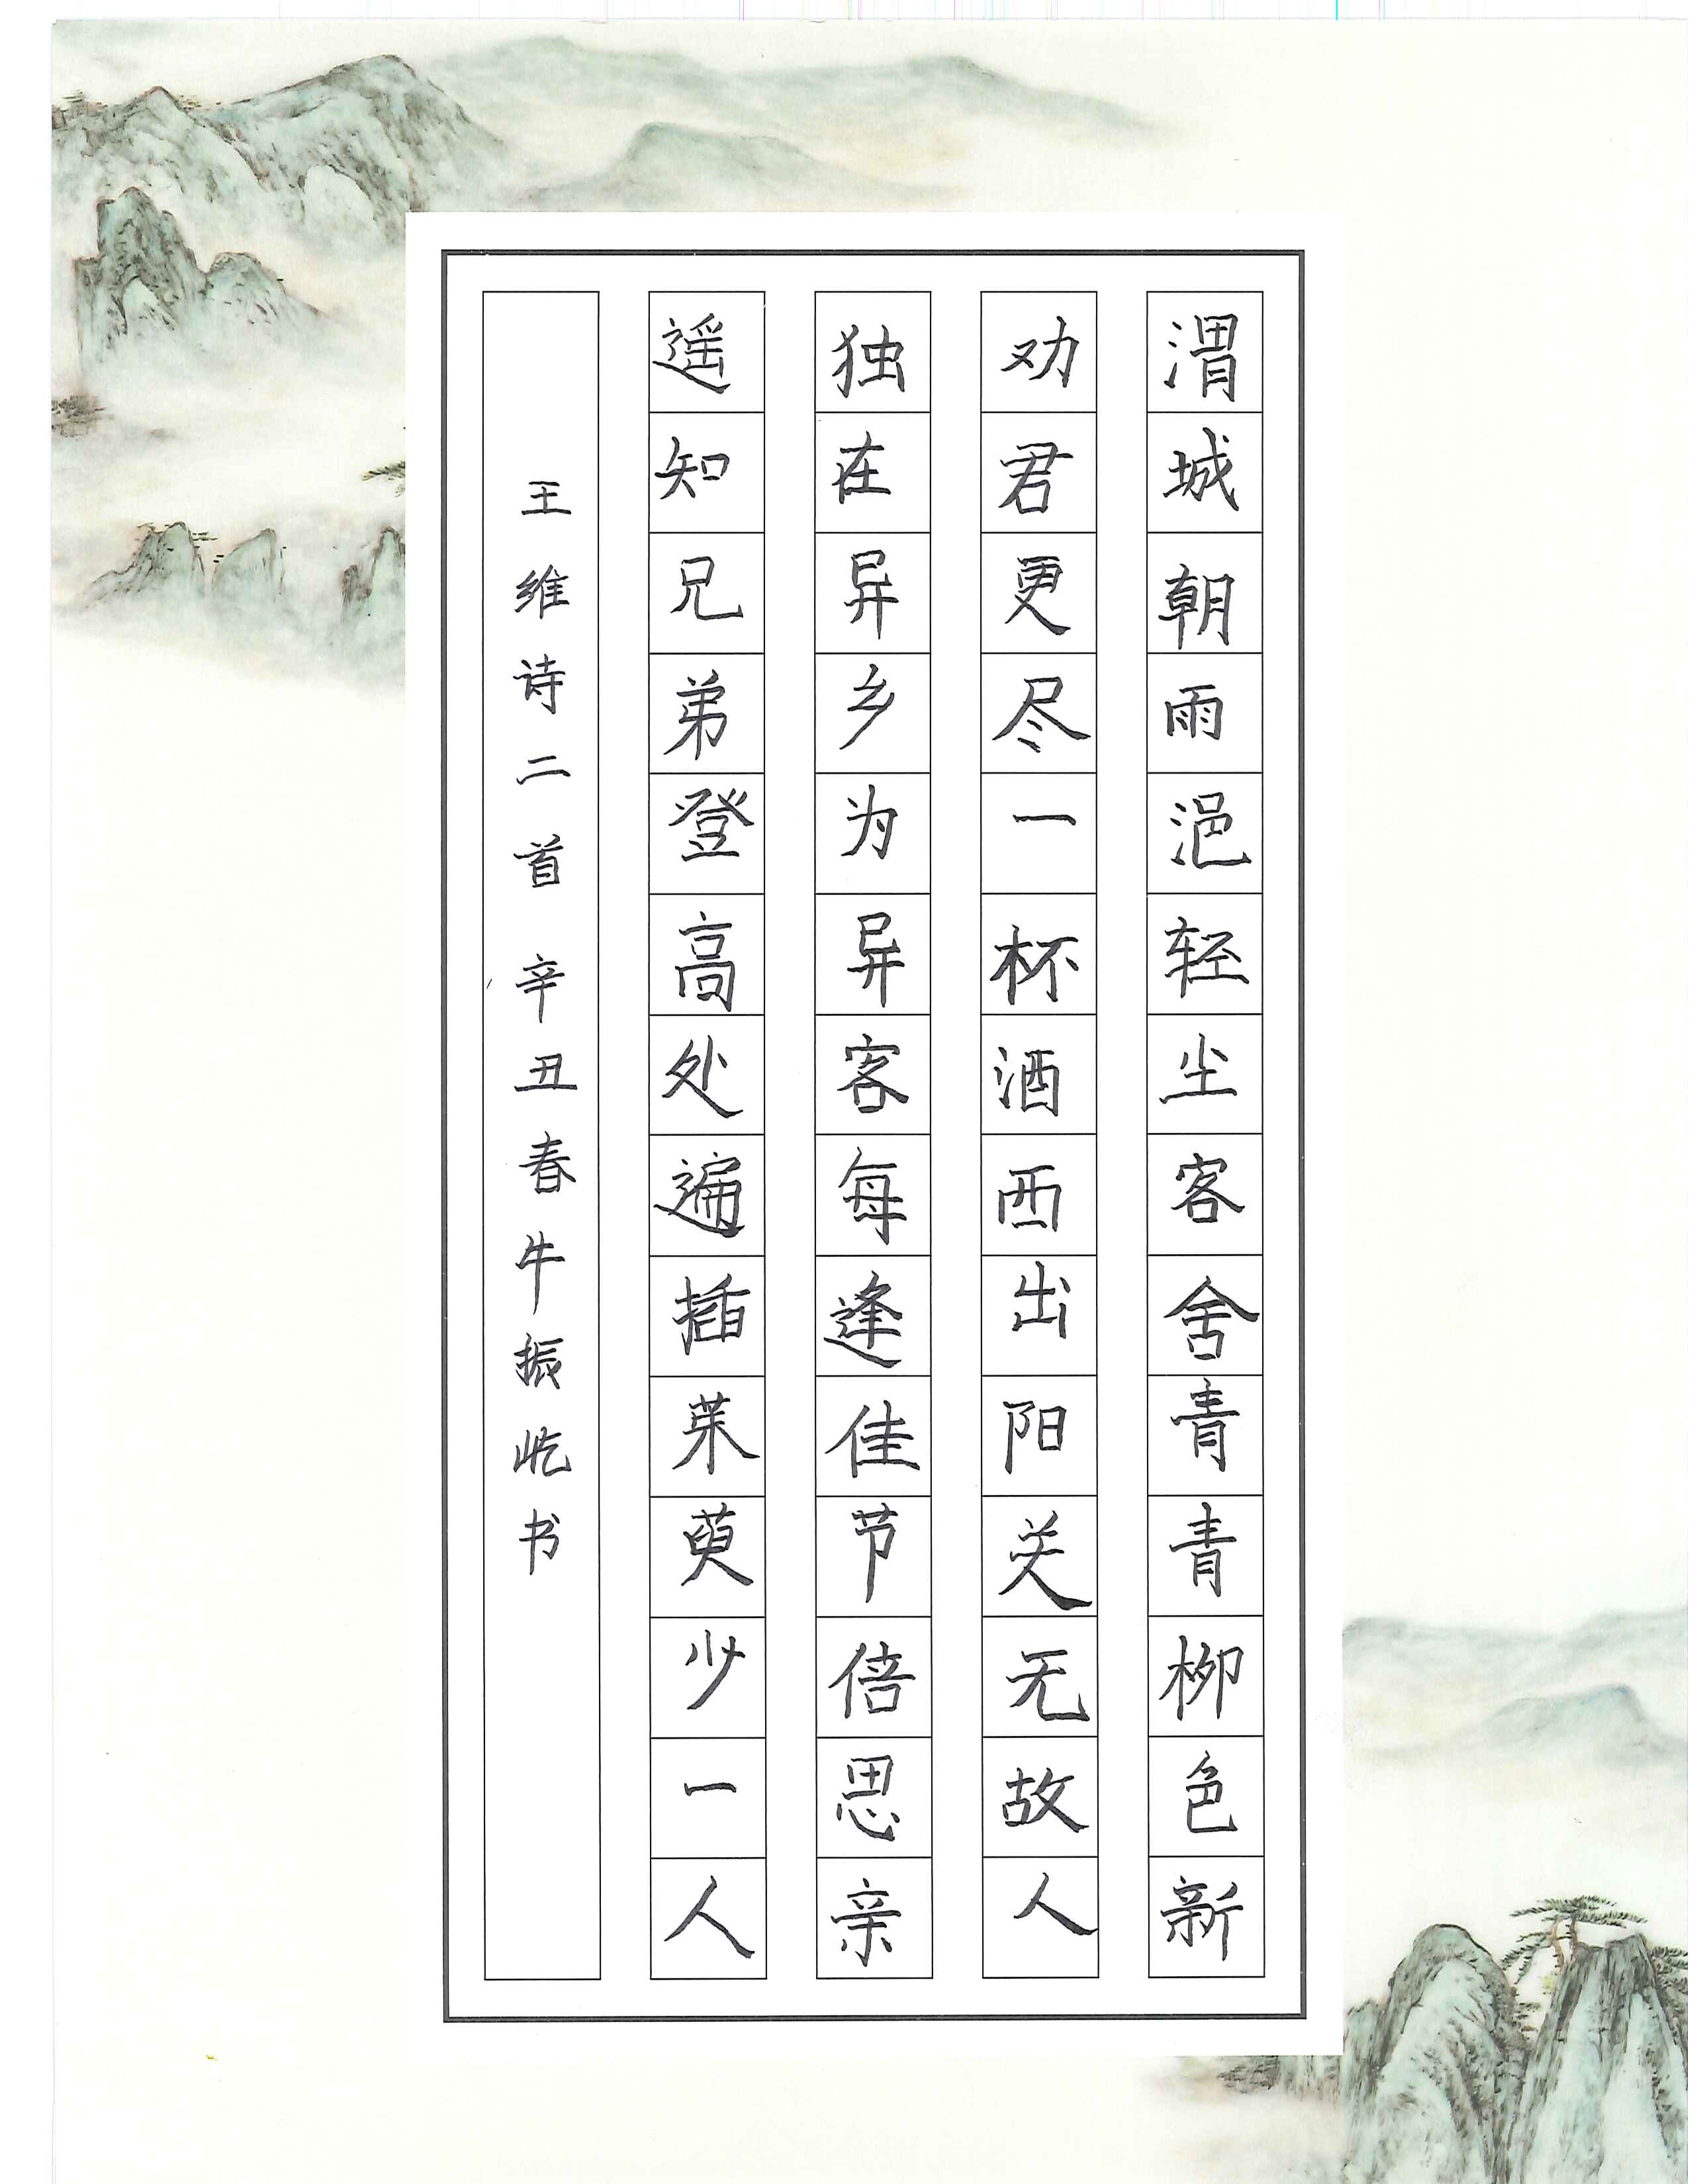 渭城朝雨浥轻尘客舍青青柳色新
劝君更尽一杯酒西出阳关无故人
独在异乡为异客每逢佳节倍思亲
遥知兄弟登高处遍插茱萸少一人
王维诗二首 辛丑春牛振屹书